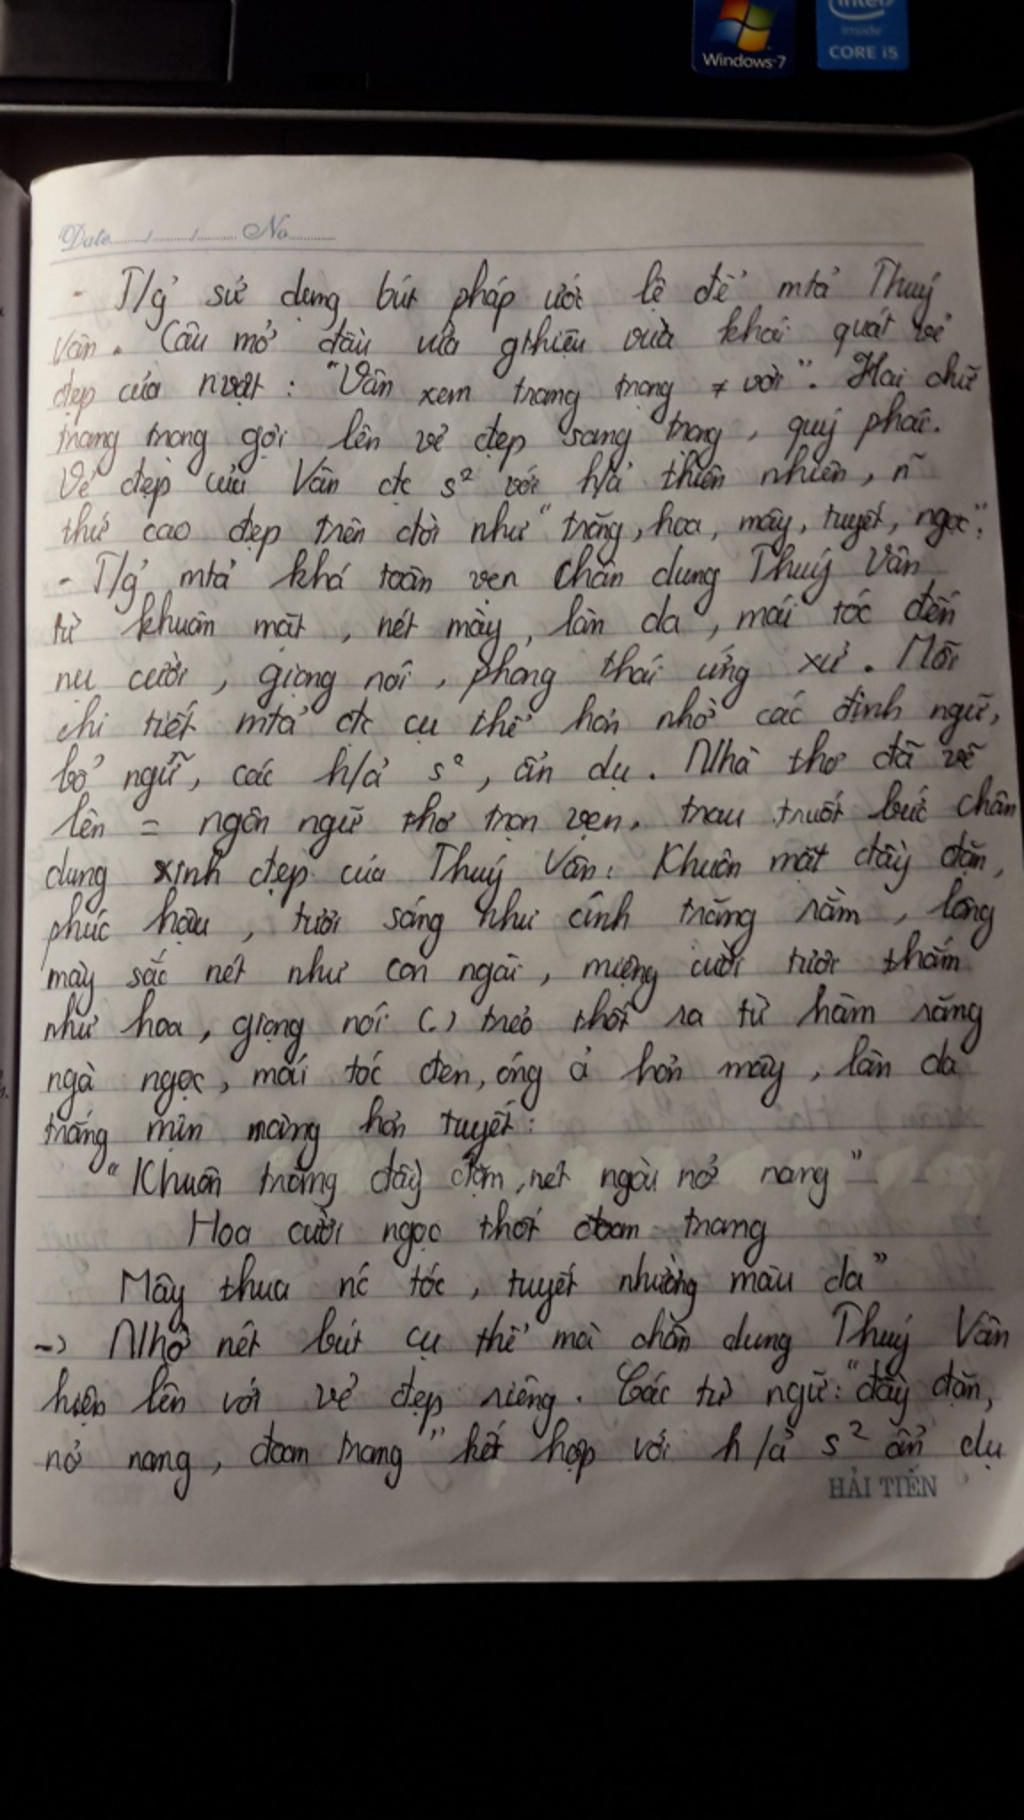 intel
inside
CORE i5
Windows 7
Date No
- T/g' sử dụng bút pháp ước lệ để mtả Thuý
Vân. Câu mở đầu vừa gthiệu vừa khái quát vẻ
đẹp của nvật: "Vân xem trang trọng ≠ vời". Hai chữ
trang trọng gợi lên vẻ đẹp sang trọng, quý phái.
Vẻ đẹp của Vân đc s² với h/ả thiên nhiên, n~
thứ cao đẹp trên đời như "trăng, hoa, mây, tuyết, ngọc".
- T/g' mtả khá toàn vẹn chân dung Thuý Vân
từ khuôn mặt, nét mày, làn da, mái tóc đến
nụ cười, giọng nói, phong thái ứng xử. Mỗi
chi tiết mtả đc cụ thể hơn nhờ các định ngữ,
bổ ngữ, các h/ả s², ẩn dụ. Nhà thơ đã vẽ
lên = ngôn ngữ thơ trọn vẹn, trau truốt bức chân
dung xinh đẹp của Thuý Vân: Khuôn mặt đầy đặn,
phúc hậu, tươi sáng như ánh trăng rằm, lông
mày sắc nét như con ngài, miệng cười tươi thắm
như hoa, giọng nói (.) trẻo thốt ra từ hàm răng
ngà ngọc, mái tóc đen, óng ả hơn mây, làn da
trắng mịn màng hơn tuyết:
"Khuôn trăng đầy đặn, nét ngài nở nang"
Hoa cười ngọc thốt đoan trang
Mây thua nc tóc, tuyết nhường màu da"
-> Nhờ nét bút cụ thể mà chân dung Thuý Vân
hiện lên với vẻ đẹp riêng. Các từ ngữ: "đầy đặn,
nở nang, đoan trang" kết hợp với h/ả s² ẩn dụ
HẢI TIẾN